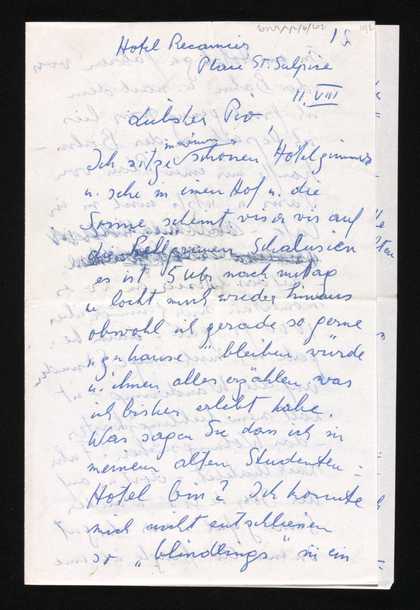 Hotel Recamier
Place St. Sulpice
11. VIII
Liebster Pio!
Ich sitze in meinem schönen Hotelzimmer
u. sehe in einen Hof u. die
Sonne scheint vis a vis auf
die hellgrauen Schalusien
es ist 5 Uhr nachmittag
u lockt mich wieder hinaus
obwohl ich gerade so gerne
"zuhause" bleiben würde
u. ihnen alles erzählen was
ich bisher erlebt habe.
Was sagen Sie dass ich in
meinem alten Studenten-
Hotel bin? Ich konnte
mich nicht entschliessen
so "blindlings" in ein